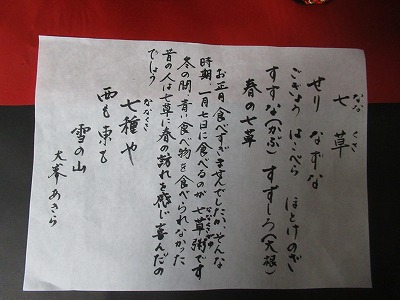 七草
なな くさ
せり なずな
ごぎょう はこべら ほとけのざ
すずな(かぶ) すずしろ(大根)
春の七草
お正月食べすぎませんでしたか、そんな
時期 一月七日に食べるのが七草粥です
ななくさがゆ
冬の間、青い食べ物を食べられなかった
昔の人は七草に春の訪れを感じ喜んだの
でしょう
七種や
ななくさ
西も東も
雪の山
大峯あきら